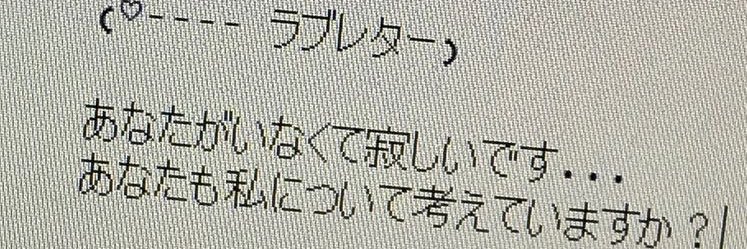 (♡---- ラブレター)
あなたがいなくて寂しいです...
あなたも私について考えていますか？|